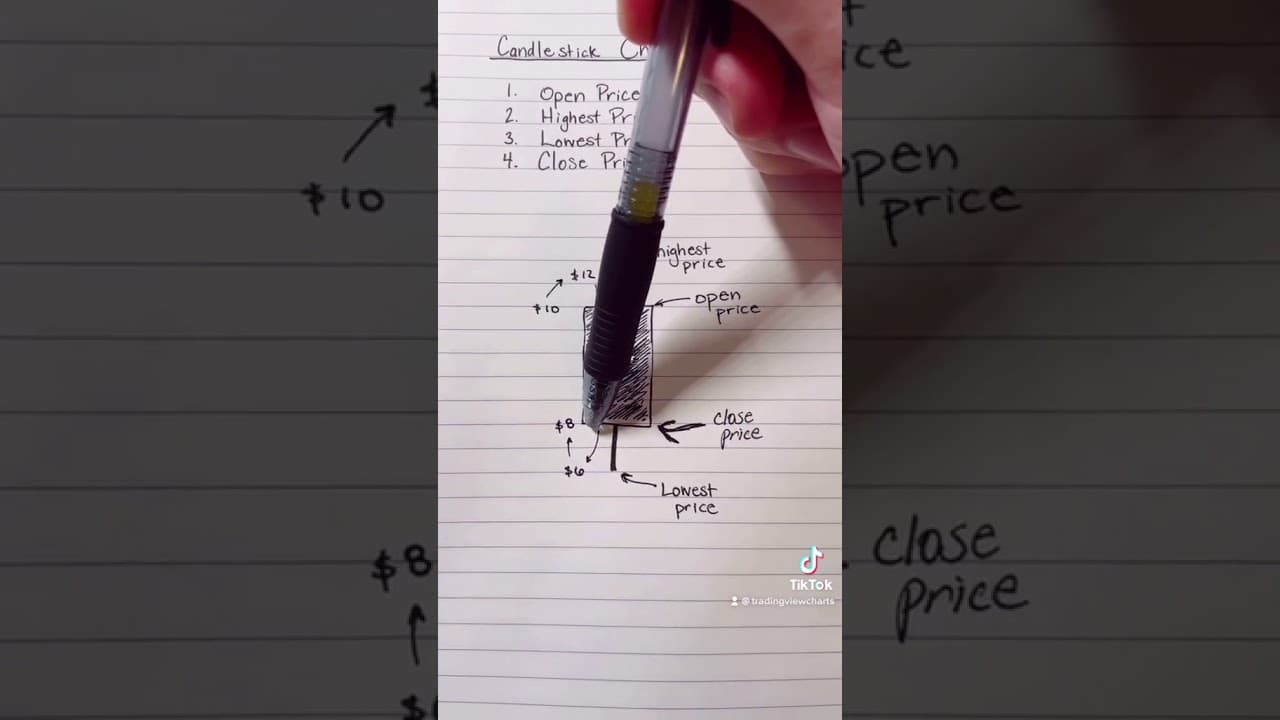 Candlestick
1. Open Price
2. Highest
3. Lowest
4. Close
highest
price
$12
$10
open
price
$8
close
price
$6
Lowest
price
TikTok
@tradingviewcharts
$10
price
$8
close
price